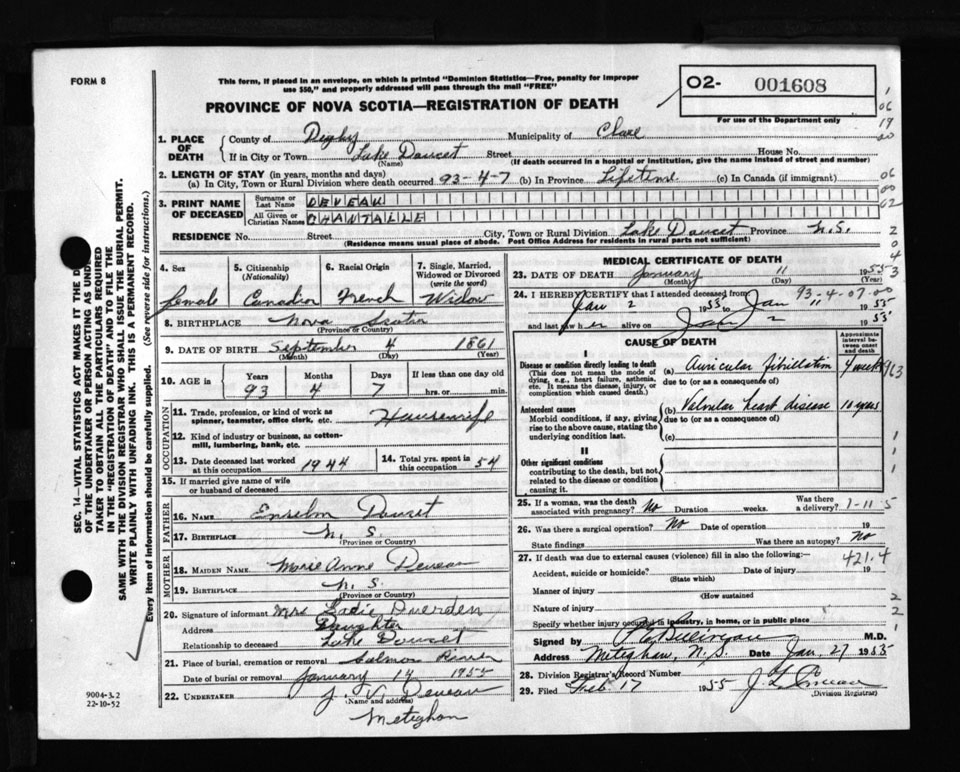 FORM 8
This form, if placed in an envelope, on which is printed "Dominion Statistics—Free, penalty for improper
use $50," and properly addressed will pass through the mail "FREE"
O2- 001608
For use of the Department only
PROVINCE OF NOVA SCOTIA—REGISTRATION OF DEATH
1. PLACE OF DEATH
County of Digby Municipality of Clare
If in City or Town Lake Doucet Street House No.
(Name) (If death occurred in a hospital or institution, give the name instead of street and number)
2. LENGTH OF STAY (in years, months and days)
(a) In City, Town or Rural Division where death occurred 93-4-7 (b) In Province Lifetime (c) In Canada (if immigrant)
3. PRINT NAME OF DECEASED
Surname or Last Name DEVEAU
All Given or Christian Names CHANTALLE
RESIDENCE No. Street City, Town or Rural Division Lake Doucet Province N.S.
(Residence means usual place of abode. Post Office Address for residents in rural parts not sufficient)
4. Sex
female
5. Citizenship (Nationality)
Canadian
6. Racial Origin
French
7. Single, Married, Widowed or Divorced (write the word)
Widow
8. BIRTHPLACE Nova Scotia
(Province or Country)
9. DATE OF BIRTH September 4 1861
(Month) (Day) (Year)
10. AGE in Years Months Days If less than one day old
93 4 7 hrs. or min.
OCCUPATION
11. Trade, profession, or kind of work as
spinner, teamster, office clerk, etc. Housewife
12. Kind of industry or business, as cotton-
mill, lumbering, bank, etc.
13. Date deceased last worked
at this occupation 1944
14. Total yrs. spent in
this occupation 54
15. If married give name of wife
or husband of deceased
FATHER
16. NAME Enselm Doucet
17. BIRTHPLACE N. S.
(Province or Country)
MOTHER
18. MAIDEN NAME Marie Anne Deveau
19. BIRTHPLACE N. S.
(Province or Country)
20. Signature of informant Mrs
Address Daughter
Relationship to deceased Lake Doucet
21. Place of burial, cremation or removal Salmon River
Date of burial or removal January 14 1955
22. UNDERTAKER J. V. Deveau
(Name and address)
Meteghan
MEDICAL CERTIFICATE OF DEATH
23. DATE OF DEATH January 11 1955
(Month) (Day)
93-4-07-00
24. I HEREBY CERTIFY that I attended deceased from
Jan 2 1955 to Jan 11 1955
and last saw her alive on Jan 2 1955
CAUSE OF DEATH
Approximate interval between onset and death
I
Disease or condition directly leading to death
(This does not mean the mode of
dying, e.g., heart failure, asthenia,
etc. It means the disease, injury, or
complication which caused death.)
(a) Auricular fibrillation 4 weeks
due to (or as a consequence of)
Antecedent causes
Morbid conditions, if any, giving
rise to the above cause, stating the
underlying condition last.
(b) Valvular heart disease 10 years
due to (or as a consequence of)
(c)
II
Other significant conditions
contributing to the death, but not
related to the disease or condition
causing it.
25. If a woman, was the death
associated with pregnancy? No Duration weeks. Was there a delivery?
1-11-5
26. Was there a surgical operation? No Date of operation 19
State findings Was there an autopsy? No
27. If death was due to external causes (violence) fill in also the following:—
421.4
Accident, suicide or homicide? Date of injury 19
(State which)
Manner of injury
(How sustained
Nature of injury
Specify whether injury occurred in industry, in home, or in public place
Signed by M.D.
Address Meteghan, N. S. Date Jan. 27 1955
28. Division Registrar's Record Number
29. Filed Feb 17 1955
(Division Registrar)
SEC. 14—VITAL STATISTICS ACT MAKES IT THE D
OF THE UNDERTAKER OR PERSON ACTING AS UND
TAKER TO OBTAIN ALL THE PARTICULARS REQUIRED
IN THE "REGISTRATION OF DEATH" AND TO FILE THE
SAME WITH THE DIVISION REGISTRAR WHO SHALL ISSUE THE BURIAL PERMIT.
WRITE PLAINLY WITH UNFADING INK. THIS IS A PERMANENT RECORD.
Every item of information should be carefully supplied. (See reverse side for instructions.)
9004-3.2
22-10-52